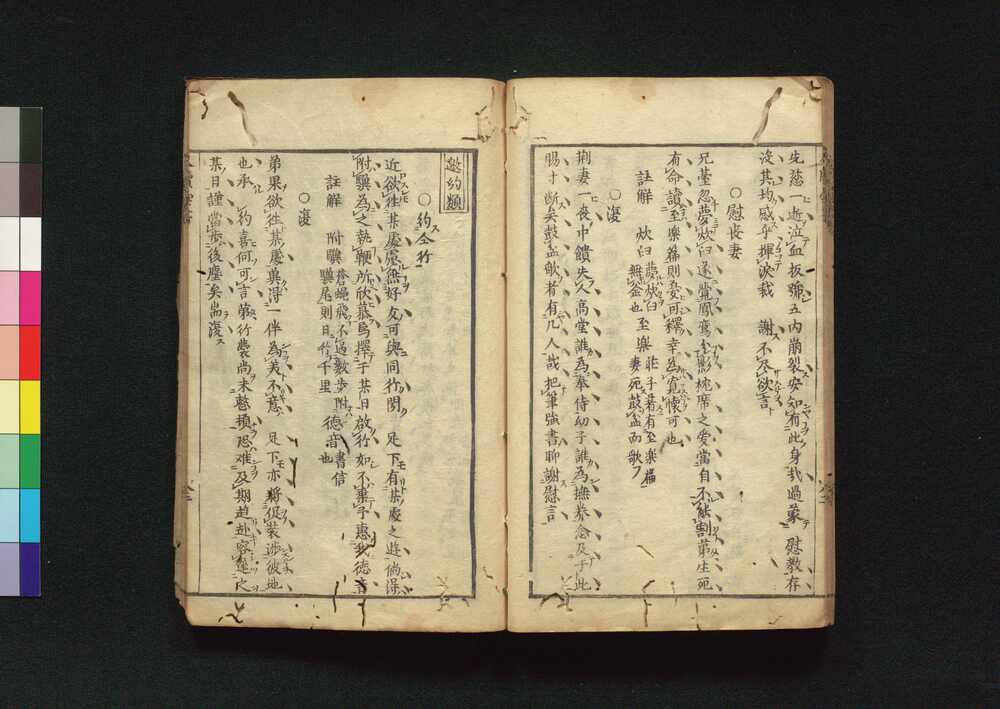 先慈一逝泣血扳號五内崩裂安知有此身哉過蒙 慰教存
沒其均感乎揮淚哉 謝不尽欲言
○慰喪妻
兄荃忽夢炊臼遂覚鳳鸞隻影枕席之愛當自不能割第生死
有命讀至樂篇則妄可釋幸為寛懐可也
註解 炊臼 夢炊臼無釜也 至樂 莊子著有至樂篇妻死鼓盆而歌
○復
荊妻一喪中饋失人高堂誰為奉侍幼子誰為撫養念及于此
腸寸断矣鼓盆歌者有几人哉把筆強書聊謝慰言
邀約類
○約仝行
近欲往某處處無好友可與同行聞 足下有某處之遊倘得
附驥為之執鞭所欣慕焉擇于某日啟行如不棄予惠我徳音
註解 附驥 蒼蝿飛不過数歩附驥尾則日行千里 徳音 書信也
○復
弟果欲往某處奥得一伴為美不意 足下亦將促装渉彼地
也承 約喜何可言第行嚢尚未整頓恐难及期趋赴容遅尺
某日謹當歩後塵矣耑復